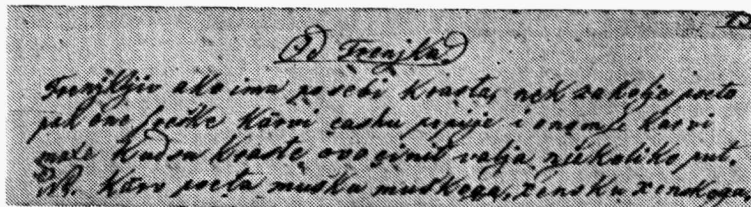 Od Frenjka
Frenjkljiv ako ima po sebi krasta, nek zakolje pseto
pak one freške kàrvi cashu popije i onomje karvi
maxe kud su kraste ovo cinit valja nikoliko put.
NB. Kàrv pseta muška muškoga, xensku xenskoga,